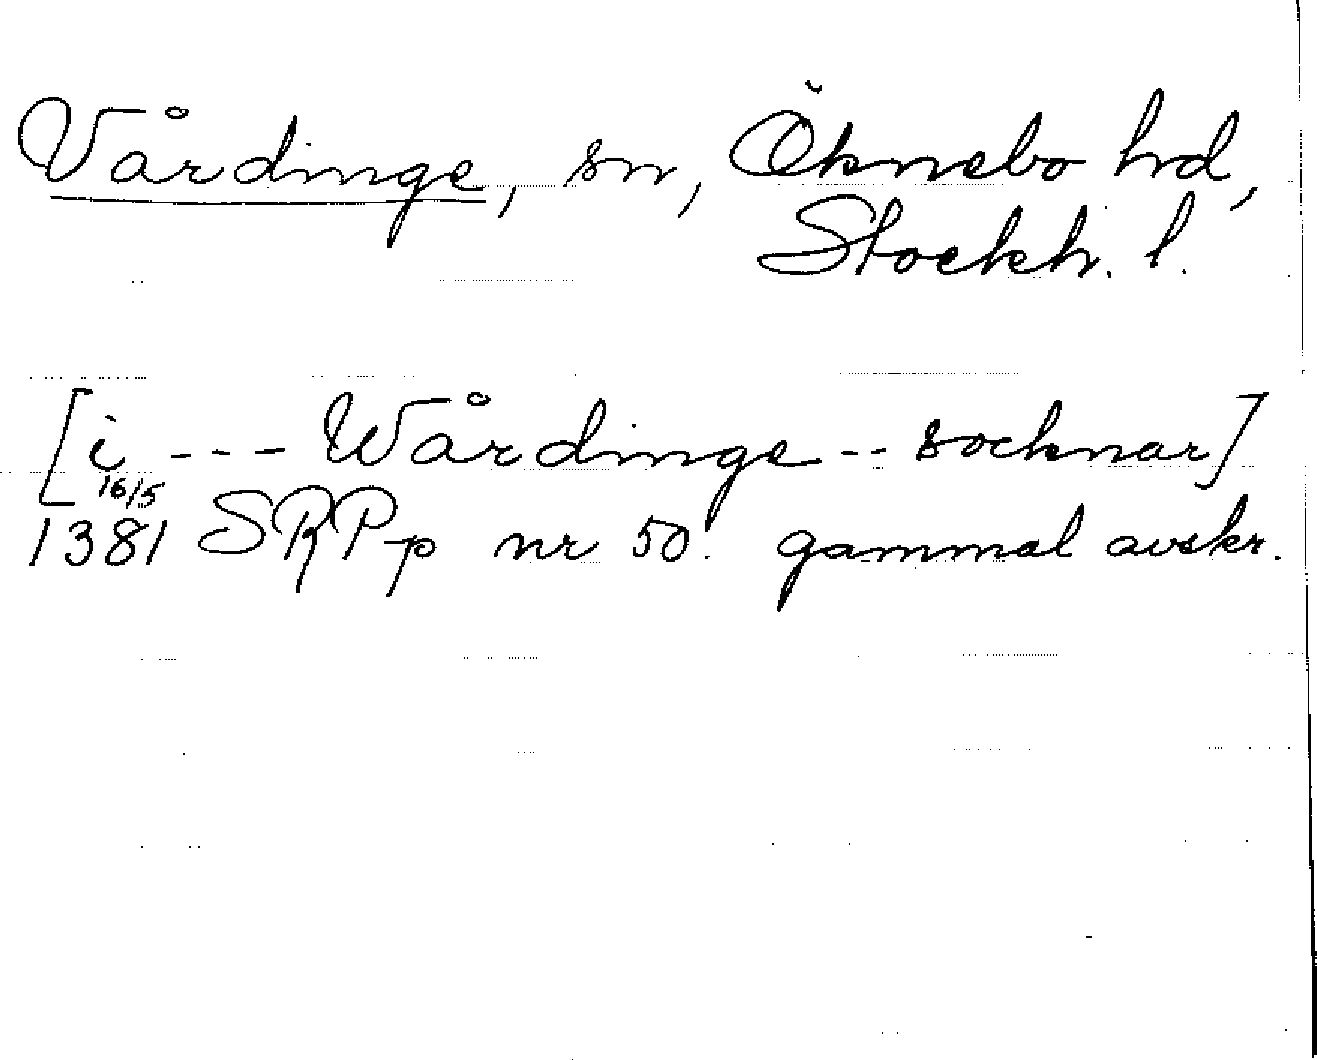 Vårdinge, sn, Öknebo hd,
Stockh. l.
[i --- Wårdinge -- socknar]
16/5
1381 SRPp nr 50. gammal avskr.